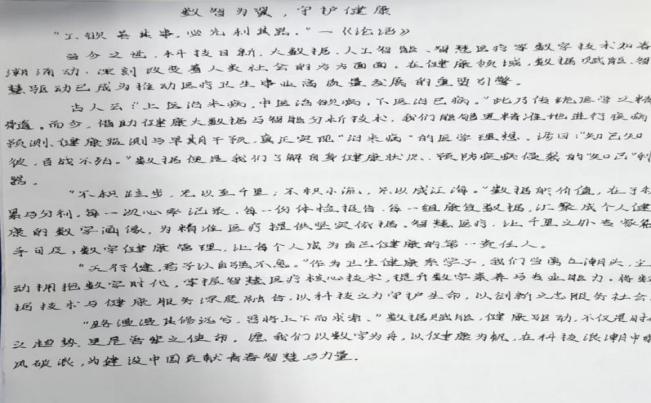 数智为翼，守护健康
“工欲善其事，必先利其器。”—《论语》
当今之世，科技日新，大数据、人工智能、智慧医疗等数字技术如春
潮涌动，深刻改变着人类社会的方方面面。在健康领域，数据赋能、智
慧驱动已成为推动医疗卫生事业高质量发展的重要引擎。
古人云：“上医治未病，中医治欲病，下医治已病。”此乃传统医学之精
髓。而今，借助健康大数据与智能分析技术，我们能够更精准地进行疾病
预测、健康监测与早期干预，真正实现“治未病”的医学理想。诗曰：“知己知
彼，百战不殆。”数据便是我们了解自身健康状况、预防疾病侵袭的“知己”利
器。
“不积跬步，无以至千里；不积小流，无以成江海。”数据的价值，在于积
累与分析。每一次心率记录、每一份体检报告、每一组康复数据，汇聚成个人健
康的数字画像，为精准医疗提供坚实依据。智慧医疗，让千里之外专家触
手可及；数字健康管理，让每个人成为自己健康的第一责任人。
“天行健，君子以自强不息。”作为卫生健康系学子，我们当勇立潮头，主
动拥抱数字时代，掌握智慧医疗核心技术，提升数字素养与专业能力。将数
据技术与健康服务深度融合，以科技之力守护生命，以创新之志服务社会。
“路漫漫其修远兮，吾将上下而求索。”数据赋能，健康驱动，不仅是时代
之趋势，更是吾辈之使命。愿我们以数字为舟，以健康为帆，在科技浪潮中乘
风破浪，为建设中国贡献青春智慧与力量。